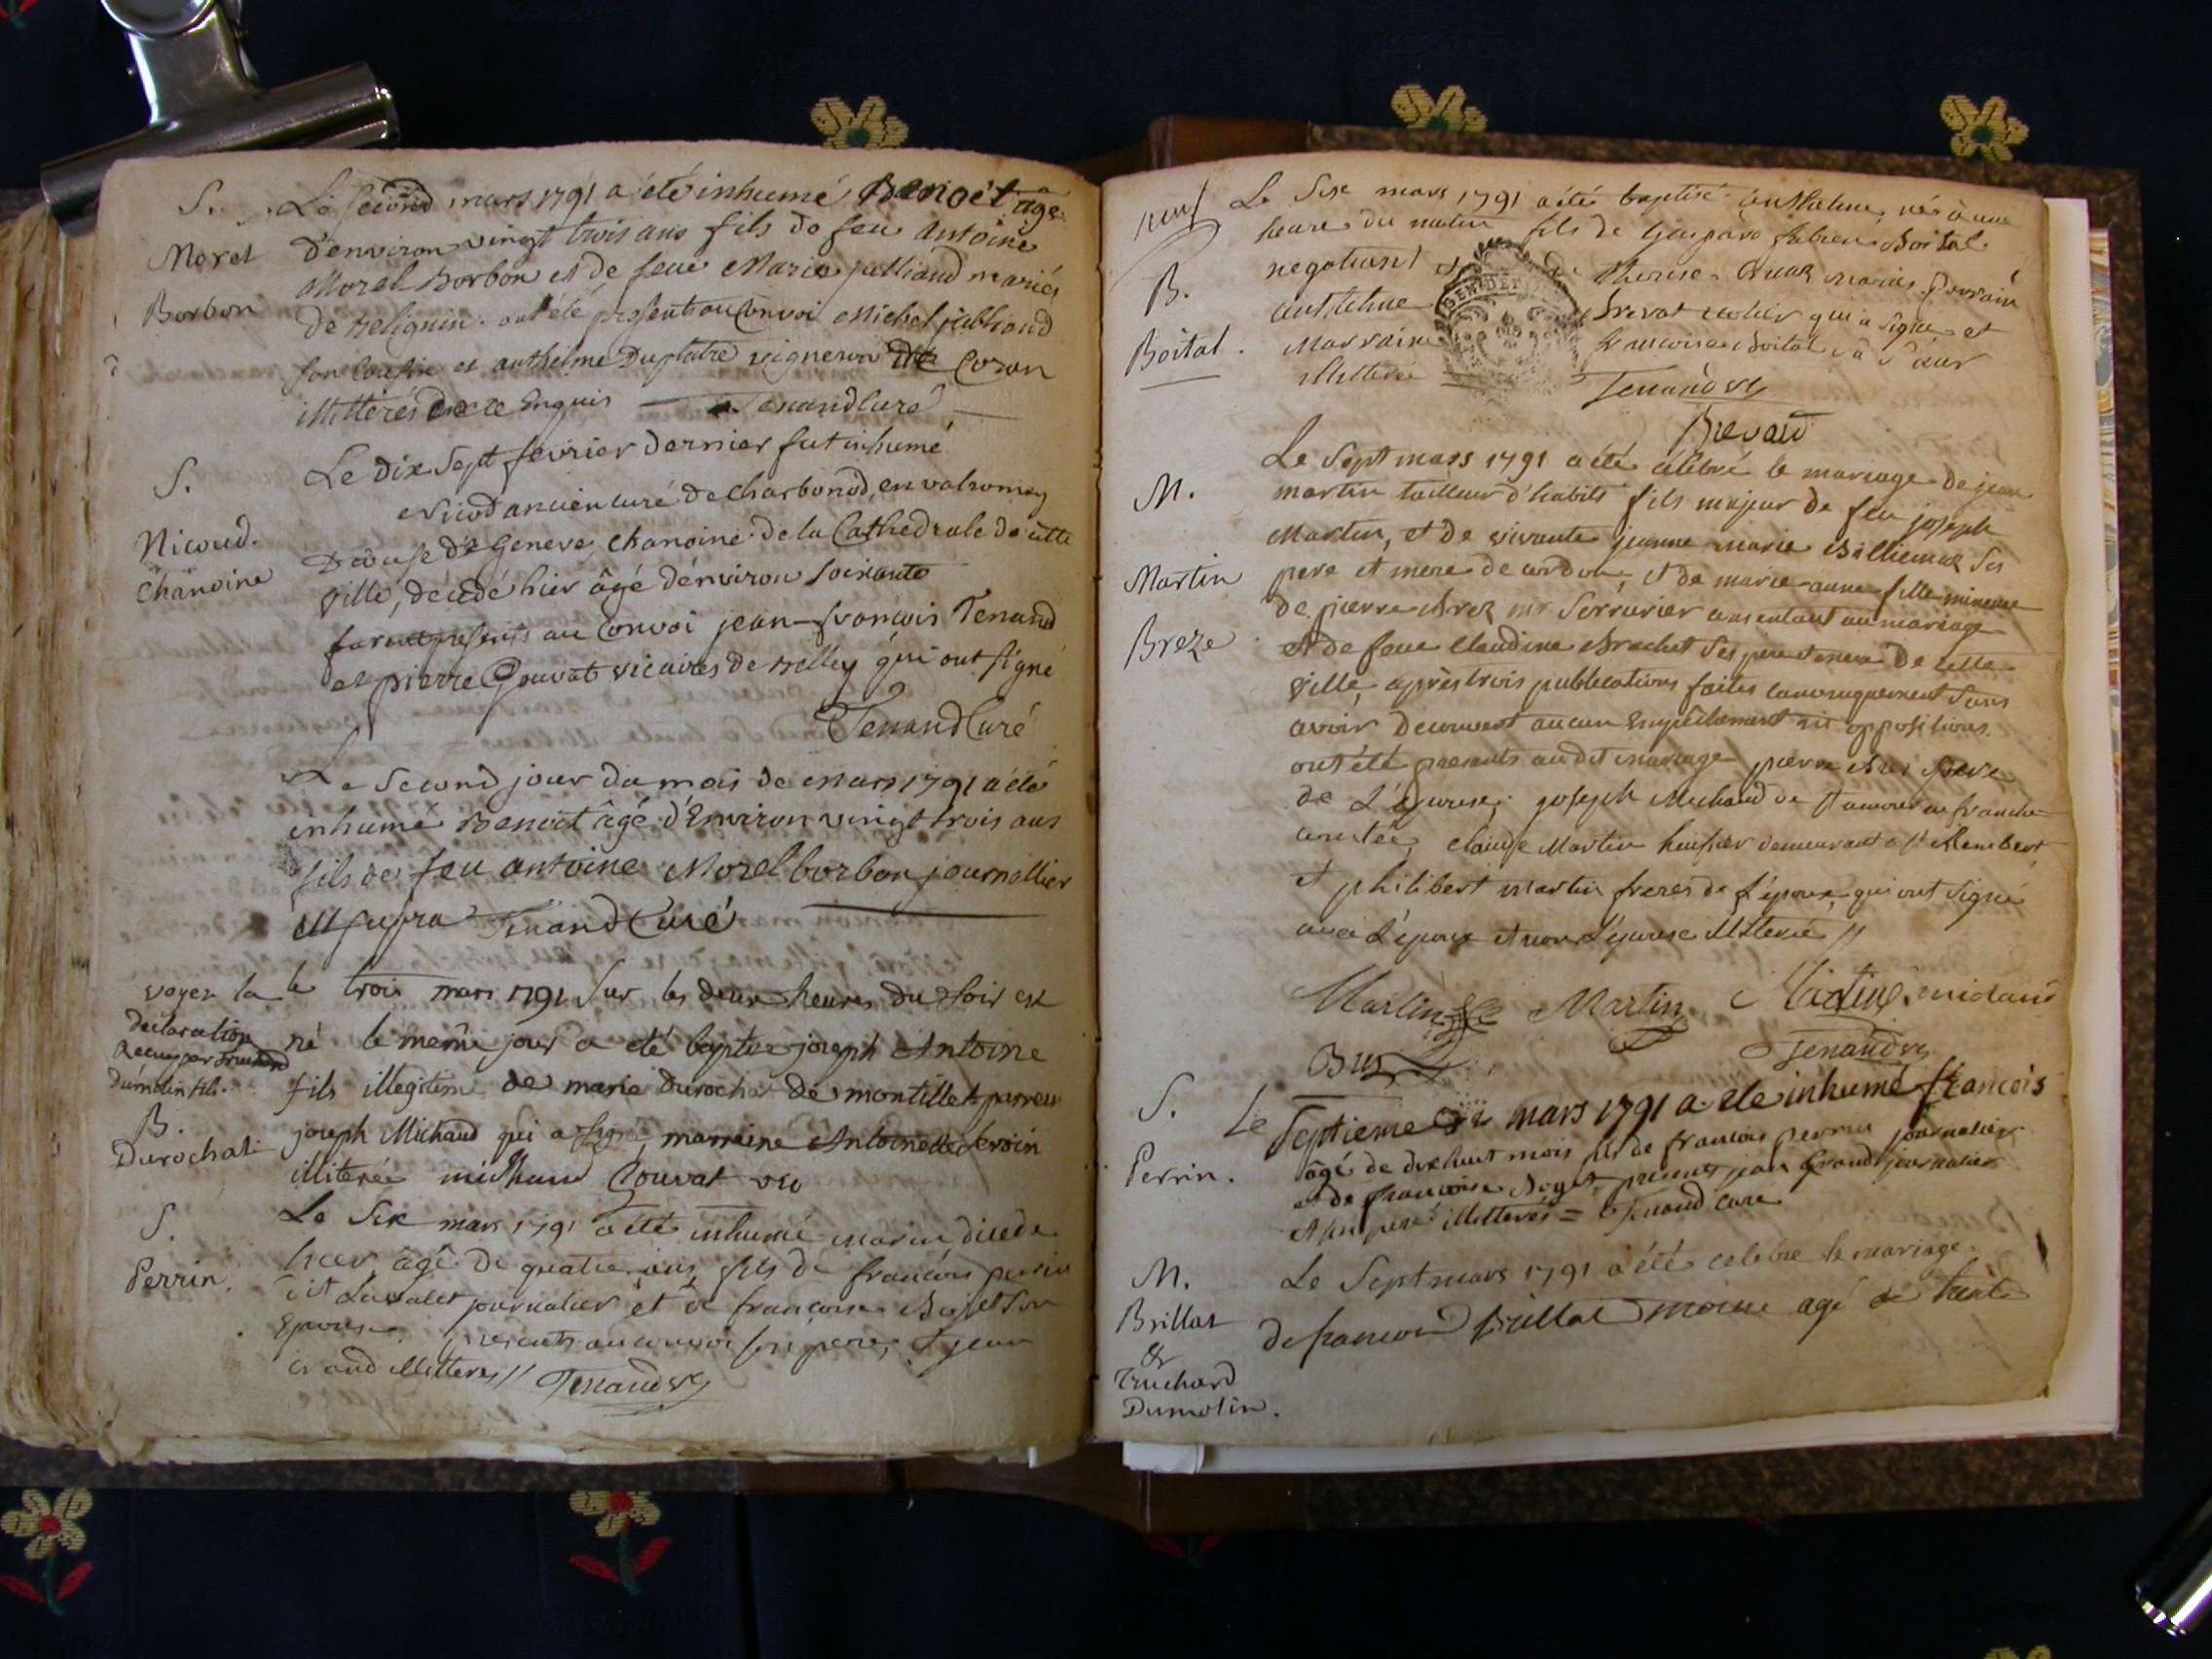 S.
Morel
Borbon
Le second mars 1791 a été inhumé Benoet age
d'environ vingt trois ans fils de feu Antoine
Morel Borbon et de feue Marie julliand mariés
de Belignin. ont été present au Convoi Michel julliand
son Cousin et anthelme Duplatre vigneron de Coron
illitterés de ce Enquis Tenand Curé
S.
Nicoud.
Chanoine
Le dix sept fevrier dernier fut inhumé
Nicod ancien curé de Charbonod, en valromey
Diocese de Geneve, Chanoine de la Cathedrale de cette
ville, décédé hier âgé d'environ soixante
furent presents au Convoi jean-francois Tenand
et pierre Gouvat vicaires de Belley qui ont signé
Tenand Curé
Le Second jour du mois de Mars 1791 a été
inhumé Benoit âgé d'Environ vingt trois ans
fils de feu antoine Morel borbon journallier
ut supra Tenand Curé
voyez la
declaration
Recue par
Dumolin fils.
B.
Durochat
le trois mars 1791 sur les deux heures du soir est
né le même jour a eté baptise joseph Antoine
fils illegitime de marie durochat de montillet parrein
joseph Michaud qui a signé, marreine Antoinette
illiterée michaud Gouvat vic
S.
Perrin.
Le Six mars 1791 a été inhumé marin décédé
hier âgé de quatre ans, fils de francois perrin
dit Lavalet journalier et de francoise Boget son
Epouse. presents au convoi son pere, et jean
Grand illitterés // Tenand vic
B.
Boital.
Le Six mars 1791 a été baptisé anthelme, né à une
heure du matin fils de Gaspard fabien Boital
negotiant et de Therese Cruaz mariés. Parrain
anthelme Brevat ecolier qui a signé et
Marraine francoise Boital sa Sœur
illitterée Tenand vic
GEN. DE
Brevard
M.
Martin
Breze
Le Sept mars 1791 a été célébré le mariage de jean
martin tailleur d'habits fils majeur de feu joseph
Martin, et de vivante jeanne marie Billiemaz ses
pere et mere de cordon, et de marie-anne fille mineure
de pierre Brez mre Serrurier consentant au mariage
et de feue Claudine Brachet ses pere et mere de cette
ville, après trois publications faites canoniquement sans
avoir decouvert aucun Empêchement ni oppositions.
ont été presents au dit mariage pierre Brez pere
de L'épouse, joseph Michaud de St en franche
comtée, claude Martin huissier demeurant a St Rambert
et philibert martin freres de l'époux, qui ont signé
avec L'époux et non L'épouse illiterée //
Martin Martin Martin. michaud
Brez Tenand vic
S.
Perrin.
Le Septieme de mars 1791 a ete inhumé francois
âgé de dix huit mois fils de francois perrin journalier
et de francoise Boget, presents jean Grand journalier
et son pere illitterés = Tenand curé
M.
Brillat
&
Truchard
Dumolin.
Le Sept mars 1791 a été celebre le mariage
de francois brillat moine agé de trente